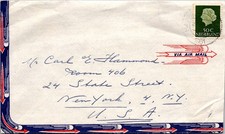 50c
NEDERLAND
VIA AIR MAIL
Mr Carl E. Hammond
Room 406
24 State Street
New York 4 N.Y.
U S A